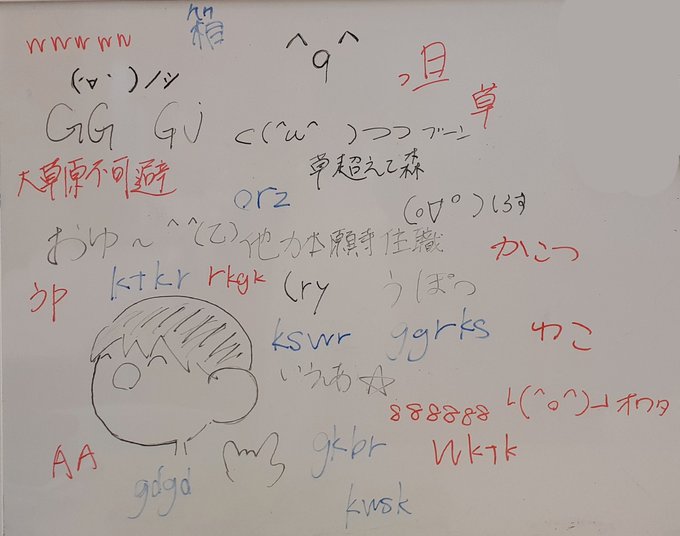 wwwwww
箱
^q^
っ旦
(・∀・)ノシ
草
GG GJ
⊂(^ω^ )⊃⊃ ブーン
大草原不可避
草超えて森
orz
(°∀°)しろす
おゆ〜^^(乙)他力本願寺住職
かにつ
うp
ktkr
rkgk
(ry
うぽつ
kswr
ggrks
わこ
いえあ☆
888888
└(^o^)┘オワタ
AA
gkbr
wktk
gdgd
kwsk